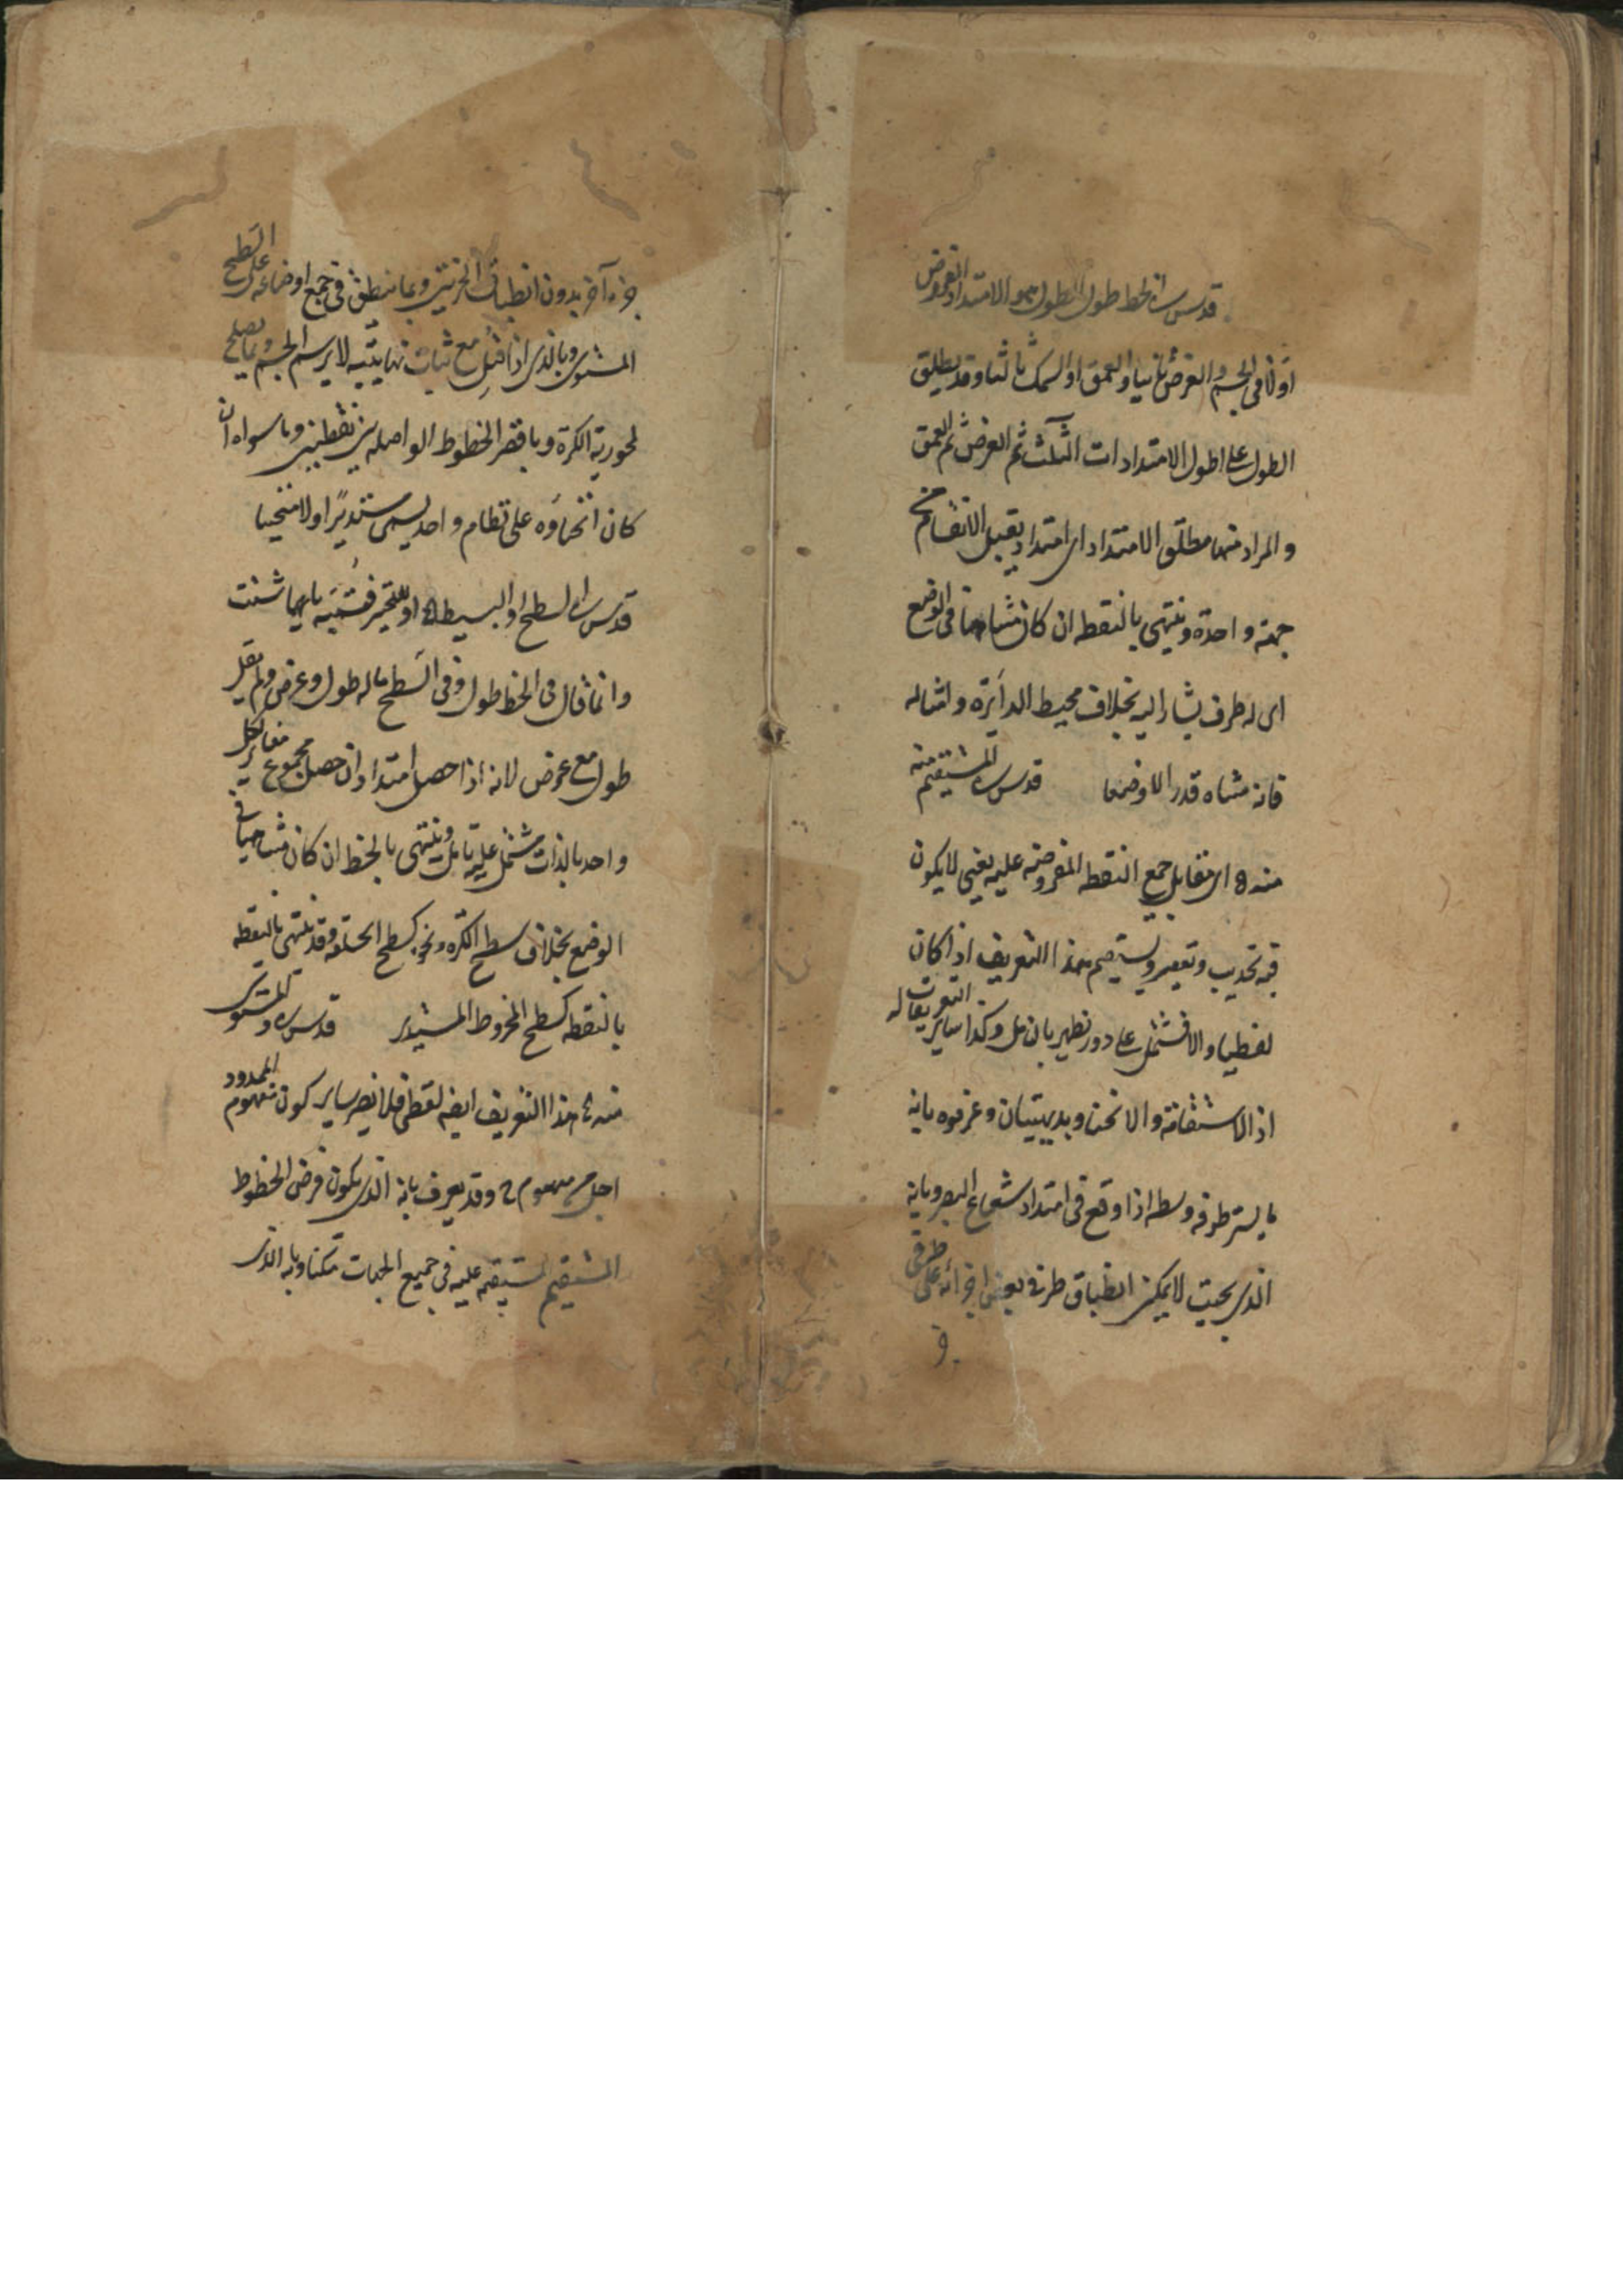 قدس سره الخط طول الطول هو الامتداد المفروض
اولا فى الجسم والعرض ثانيا والعمق او السمك ثالثا وقد يطلق
الطول على اطول الامتدادات الثلث ثم العرض ثم العمق
والمراد منها مطلق الامتداد اى امتداد يقبل الانقسام فى
جهة واحدة وينتهى بالنقطه ان كان متناهيا فى الوضع
اى له طرف يشار اليه بخلاف محيط الدايرة وامثاله
فانه متناه قدرا لا وضعا قدس سره المستقيم منه
منه اى متقابل جميع النقطه المفروضه عليه يعنى لا يكون
فيه تحديب وتقعير ويستقيم هذا التعريف اذا كان
لفظيا والا فيشتمل على دور يظهر بالتامل وكذا ساير التعريفات له
اذ الاستقامة والانحنا وبديهيتان وعرفوه بانه
ما يستر طرفه وسطه اذا وقع فى امتداد شعاع البصر وبانه
الذى بحيث لا يمكن انطباق طرفى بعض اجزائه على طرفى
جزء آخر بدون انطباق الجزئين وبما ينطبق فى جميع اوضاعه على السطح
المستوى وبالذى اذا فتل مع ثبات نهايتيه لا يرسم الجسم وبما يصلح
لمحورية الكرة وباقصر الخطوط الواصله بين نقطتين وما سواه ان
كان انحناؤه على نظام واحد يسمى مستديرًا او لا منحنيا
قدس سره السطح او البسيط او للتخيير فسمه بايهما شئت
وانما قال فى الخط طول وفى السطح ما له طول وعرض ولم يقل
طول مع عرض لانه اذا حصل امتدادان حصل مجموع مغاير لكل
واحد بالذات مشتمل عليه تامل وينتهى بالخط ان كان متناهيا فى
الوضع بخلاف سطح الكره ونحوه كسطح الحلقه وقد ينتهى بالنقطه
بالنقطه كسطح المخروط المستدير قدس سره ومستوى
منه هذا التعريف ايضه لفظى فلا يضر ساير كون مفهوم المحدود
اجلى من مفهوم وقد يعرف بانه الذى يكون فرض الخطوط
المستقيم المستقيمه عليه فى جميع الجهات ممكنا وبانه الذى